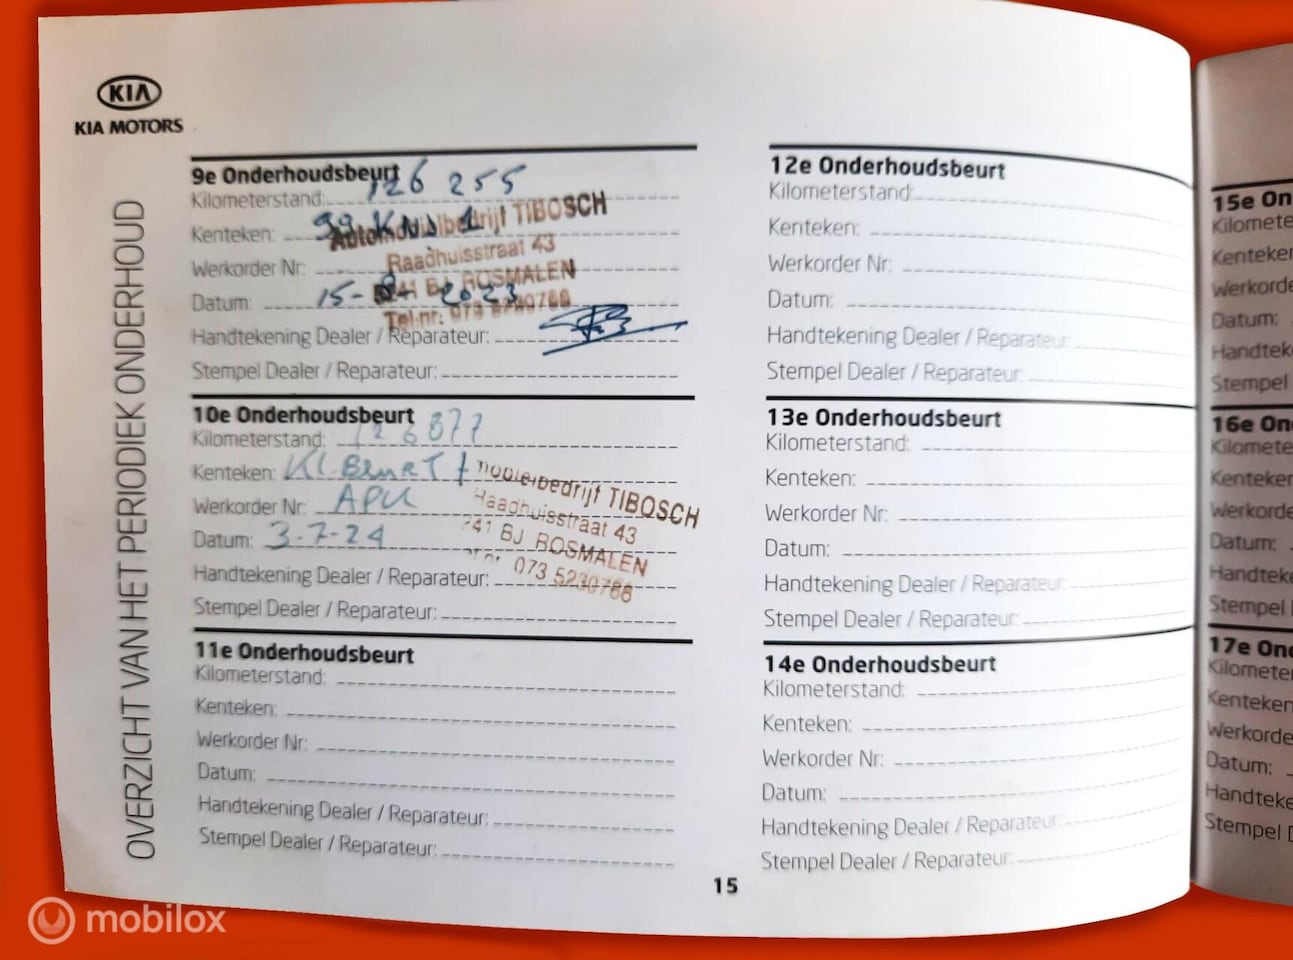 KIA
KIA MOTORS
OVERZICHT VAN HET PERIODIEK ONDERHOUD
9e Onderhoudsbeurt
Kilometerstand: 126 255
Kenteken:
Autoindustriebedrijf TIBOSCH
Raadhuisstraat 43
Werkorder Nr:
5241 BJ ROSMALEN
Datum: 15- 2023
Tel.nr: 073 5230766
Handtekening Dealer / Reparateur:
Stempel Dealer / Reparateur:
10e Onderhoudsbeurt
Kilometerstand: 126877
Kenteken: Kl. Beurt +
TIBOSCH
Werkorder Nr: APK
Raadhuisstraat 43
241 BJ ROSMALEN
Datum: 3-7-24
073 5230766
Handtekening Dealer / Reparateur:
Stempel Dealer / Reparateur:
11e Onderhoudsbeurt
Kilometerstand:
Kenteken:
Werkorder Nr:
Datum:
Handtekening Dealer / Reparateur:
Stempel Dealer / Reparateur:
12e Onderhoudsbeurt
Kilometerstand:
Kenteken:
Werkorder Nr:
Datum:
Handtekening Dealer / Reparateur:
Stempel Dealer / Reparateur:
13e Onderhoudsbeurt
Kilometerstand:
Kenteken:
Werkorder Nr:
Datum:
Handtekening Dealer / Reparateur:
Stempel Dealer / Reparateur:
14e Onderhoudsbeurt
Kilometerstand:
Kenteken:
Werkorder Nr:
Datum:
Handtekening Dealer / Reparateur:
Stempel Dealer / Reparateur:
15
15e On
Kilomete
Kenteken
Werkorde
Datum:
Handtek
Stempel
16e On
Kilomete
Kenteken
Werkorde
Datum:
Handteke
Stempel
17e On
Kilometer
Kenteken
Werkorde
Datum:
Handteke
Stempel D
mobilox